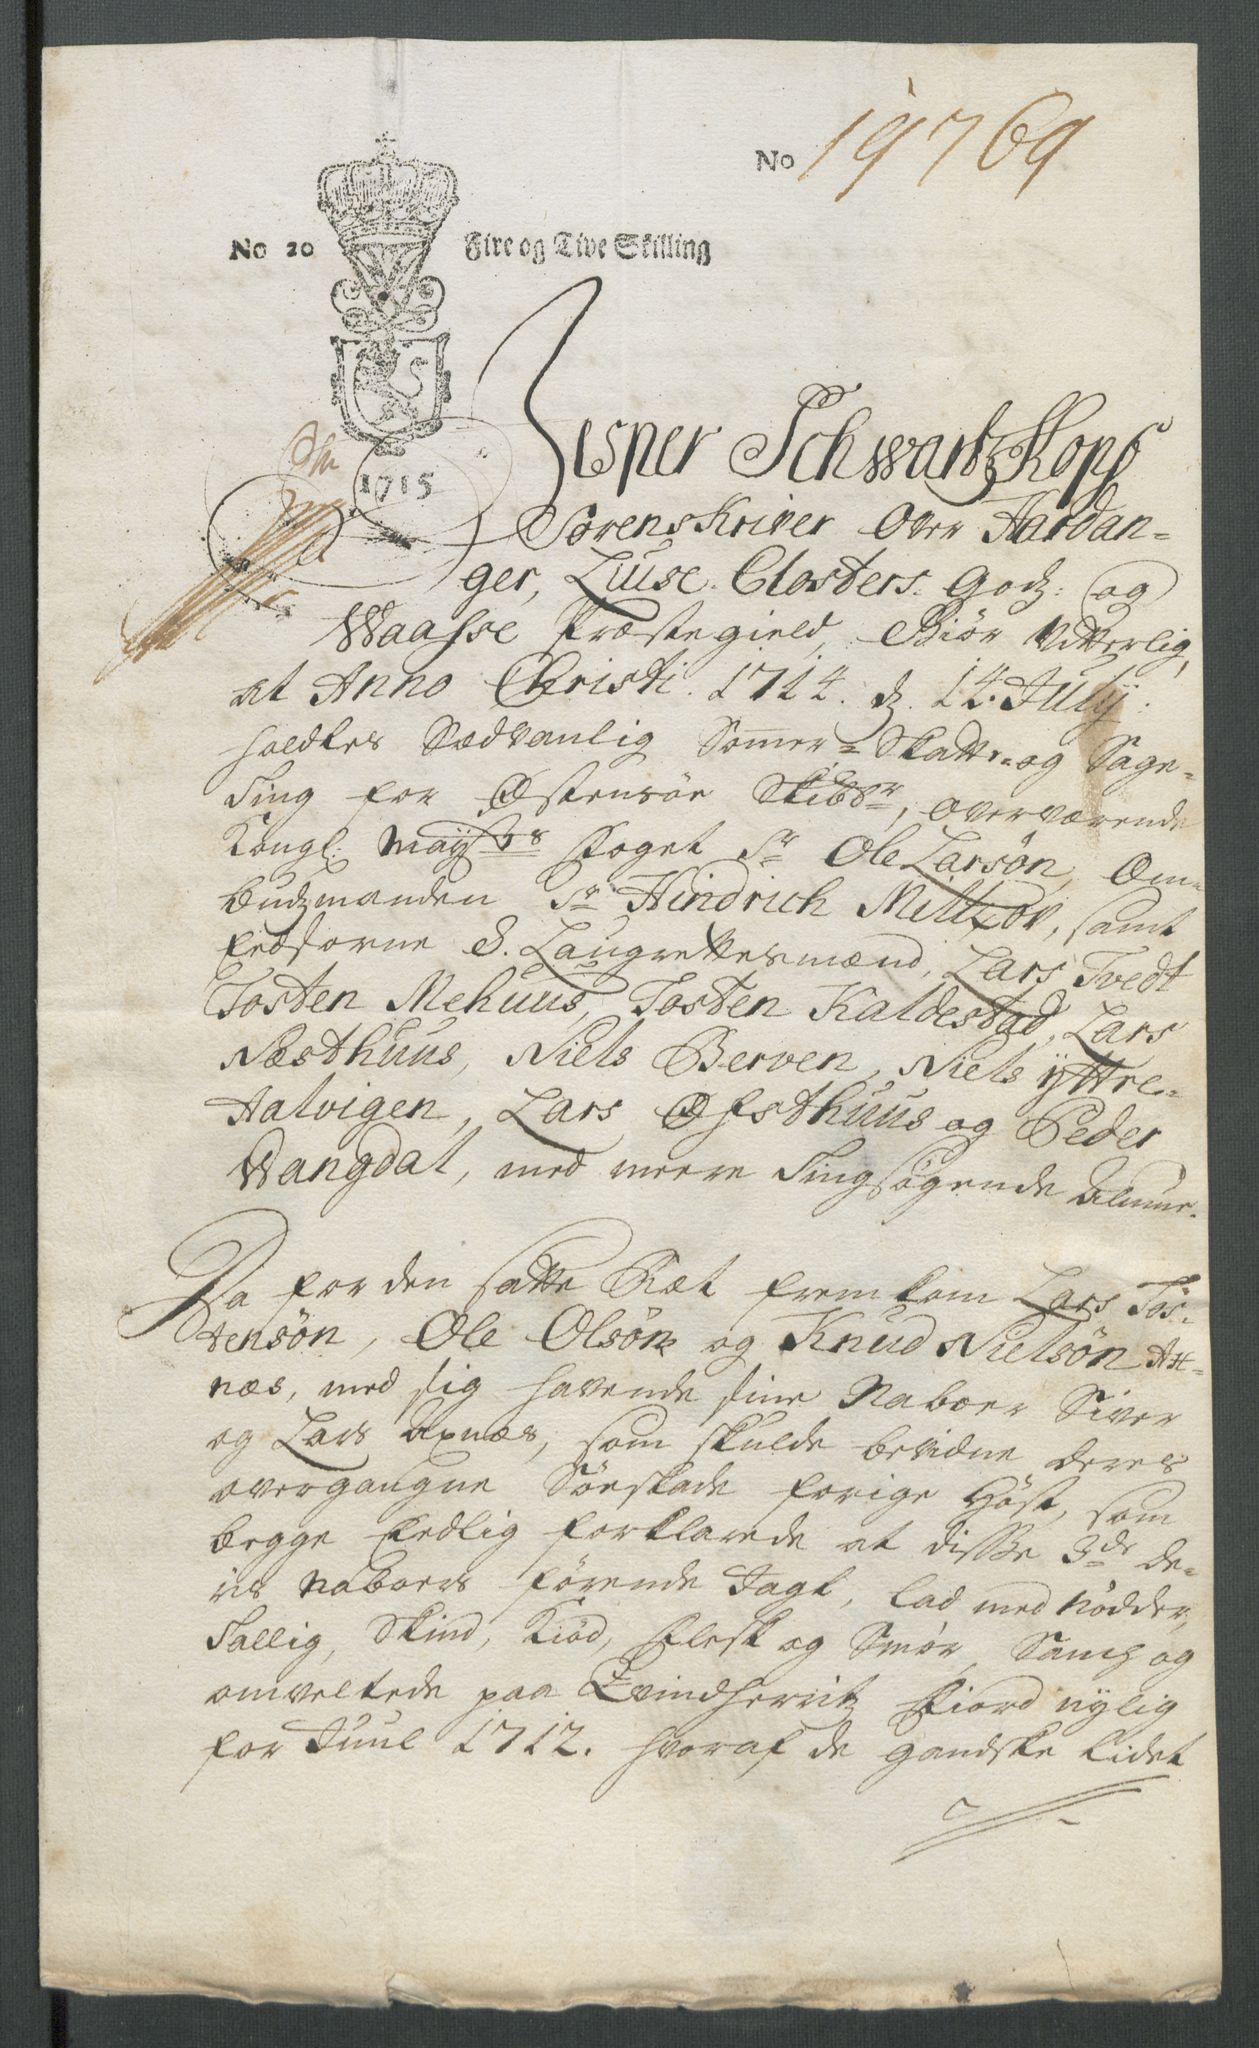 No 19769
No 20 Fire og Tive Skilling
1715
Jesper Schwartzkopf
Sorenskriver over Hardan-
ger, Luuse Closters Godz: og
Waasse Præstegield, Giør Vitterlig,
at Anno Christi. 1714. d. 14. July:
holdtes Sædvanlig Sommer- Skatte- og Sage-
Ting for Østensøe Skibbr, overværende
Kongl: Mayts Foget Sr Ole Larsøn, Om-
budzmanden Sr Hindrich Miltzov, samt
Eedsorne 8. Laugrettesmænd, Lars Tvedt
Tosten Mehuus, Tosten Kaldestad, Lars
Næsthuus, Niels Berven, Niels Yttre-
Aalvigen, Lars Øfsthuus og Peder
Wangdal, med meere Tingsøgende Almue.
Da for den satte Ræt fremkom Lars Tos-
tensøn, Ole Olsøn og Knud Nielsøn Ax-
næs, med sig havende sine Naboer Siver
og Lars Axnæs, som skulde bevidne deres
overgangne Søeskade forige Høst, som
begge Eedlig forklarede at disse 3de de-
ris Naboers førende Jagt, lad med Nødder,
Tallig, Skind, Kiød, Flesk og Smør, Sanch og
omveltede paa Qvindherritz Fiord nylig
for Juul 1712. hvoraf de gandske lidet